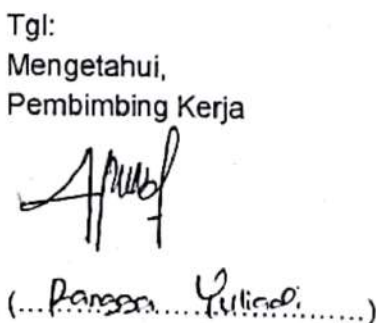 Tgl:
Mengetahui,
Pembimbing Kerja
(....Rangga....Yuliadi.............)